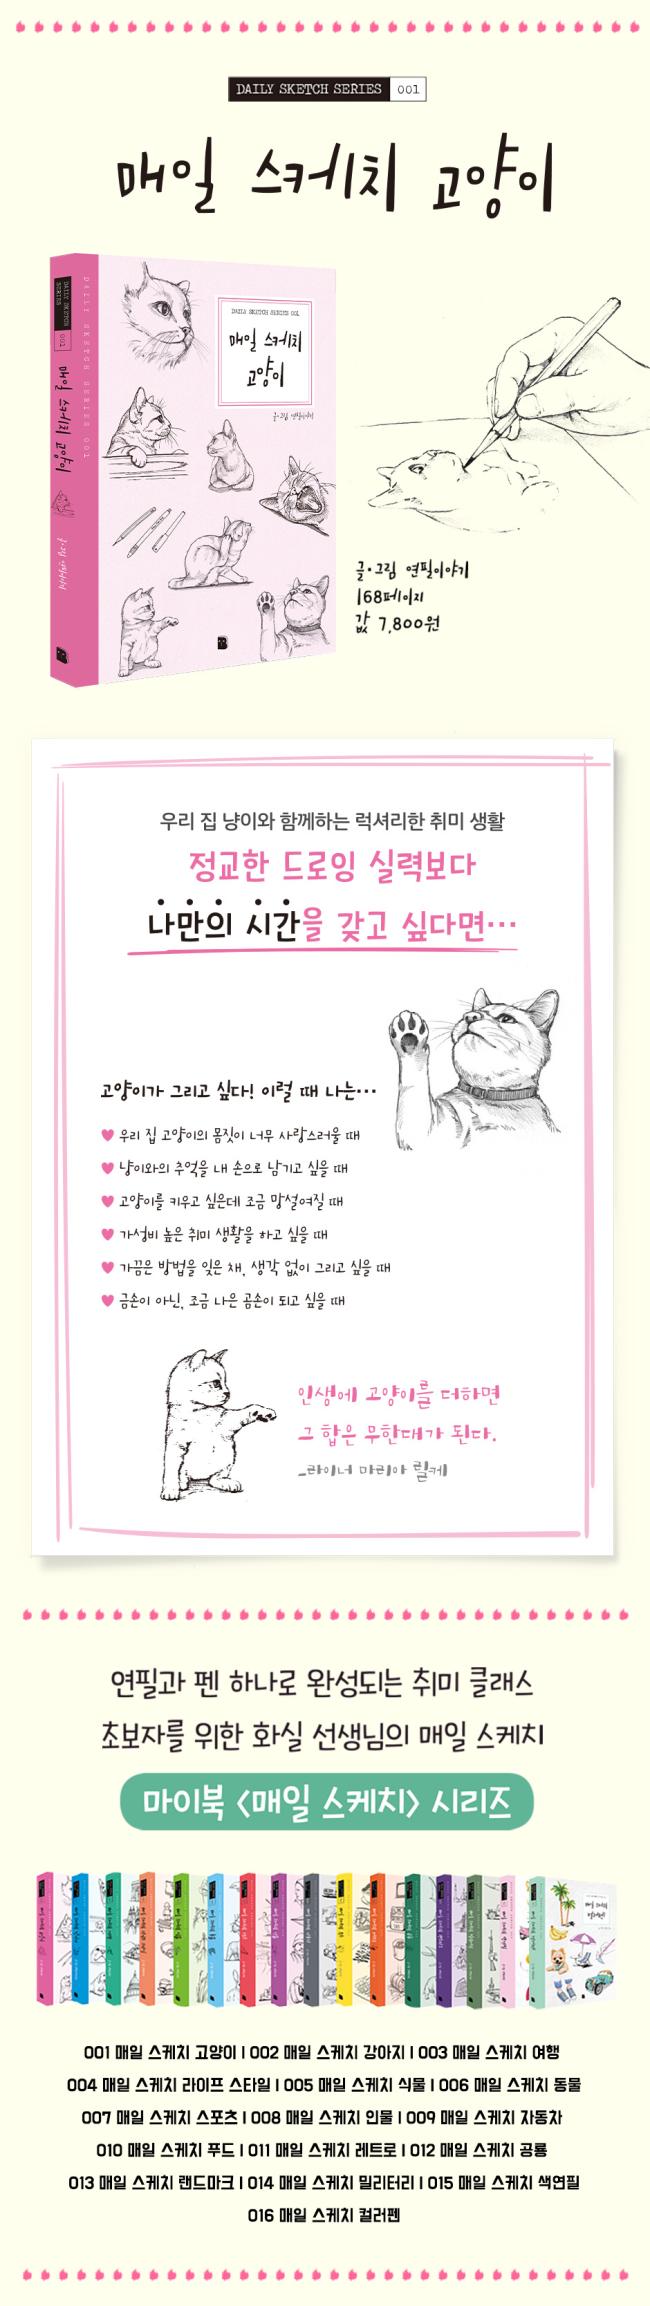 DAILY SKETCH SERIES 001
매일 스케치 고양이
DAILY SKETCH SERIES 001
매일 스케치 고양이
글·그림 연필이야기
DAILY SKETCH SERIES 001
DAILY SKETCH SERIES 001
매일 스케치
고양이
글·그림 연필이야기
글·그림 연필이야기
168페이지
값 7,800원
우리 집 냥이와 함께하는 럭셔리한 취미 생활
정교한 드로잉 실력보다
나만의 시간을 갖고 싶다면···
고양이가 그리고 싶다! 이럴 때 나는···
우리 집 고양이의 몸짓이 너무 사랑스러울 때
냥이와의 추억을 내 손으로 남기고 싶을 때
고양이를 키우고 싶은데 조금 망설여질 때
가성비 높은 취미 생활을 하고 싶을 때
가끔은 방법을 잊은 채, 생각 없이 그리고 싶을 때
금손이 아닌, 조금 나은 곰손이 되고 싶을 때
인생에 고양이를 더하면
그 합은 무한대가 된다.
_라이너 마리아 릴케
연필과 펜 하나로 완성되는 취미 클래스
초보자를 위한 화실 선생님의 매일 스케치
마이북 <매일 스케치> 시리즈
001 매일 스케치 고양이 | 002 매일 스케치 강아지 | 003 매일 스케치 여행
004 매일 스케치 라이프 스타일 | 005 매일 스케치 식물 | 006 매일 스케치 동물
007 매일 스케치 스포츠 | 008 매일 스케치 인물 | 009 매일 스케치 자동차
010 매일 스케치 푸드 | 011 매일 스케치 레트로 | 012 매일 스케치 공룡
013 매일 스케치 랜드마크 | 014 매일 스케치 밀리터리 | 015 매일 스케치 색연필
016 매일 스케치 컬러펜